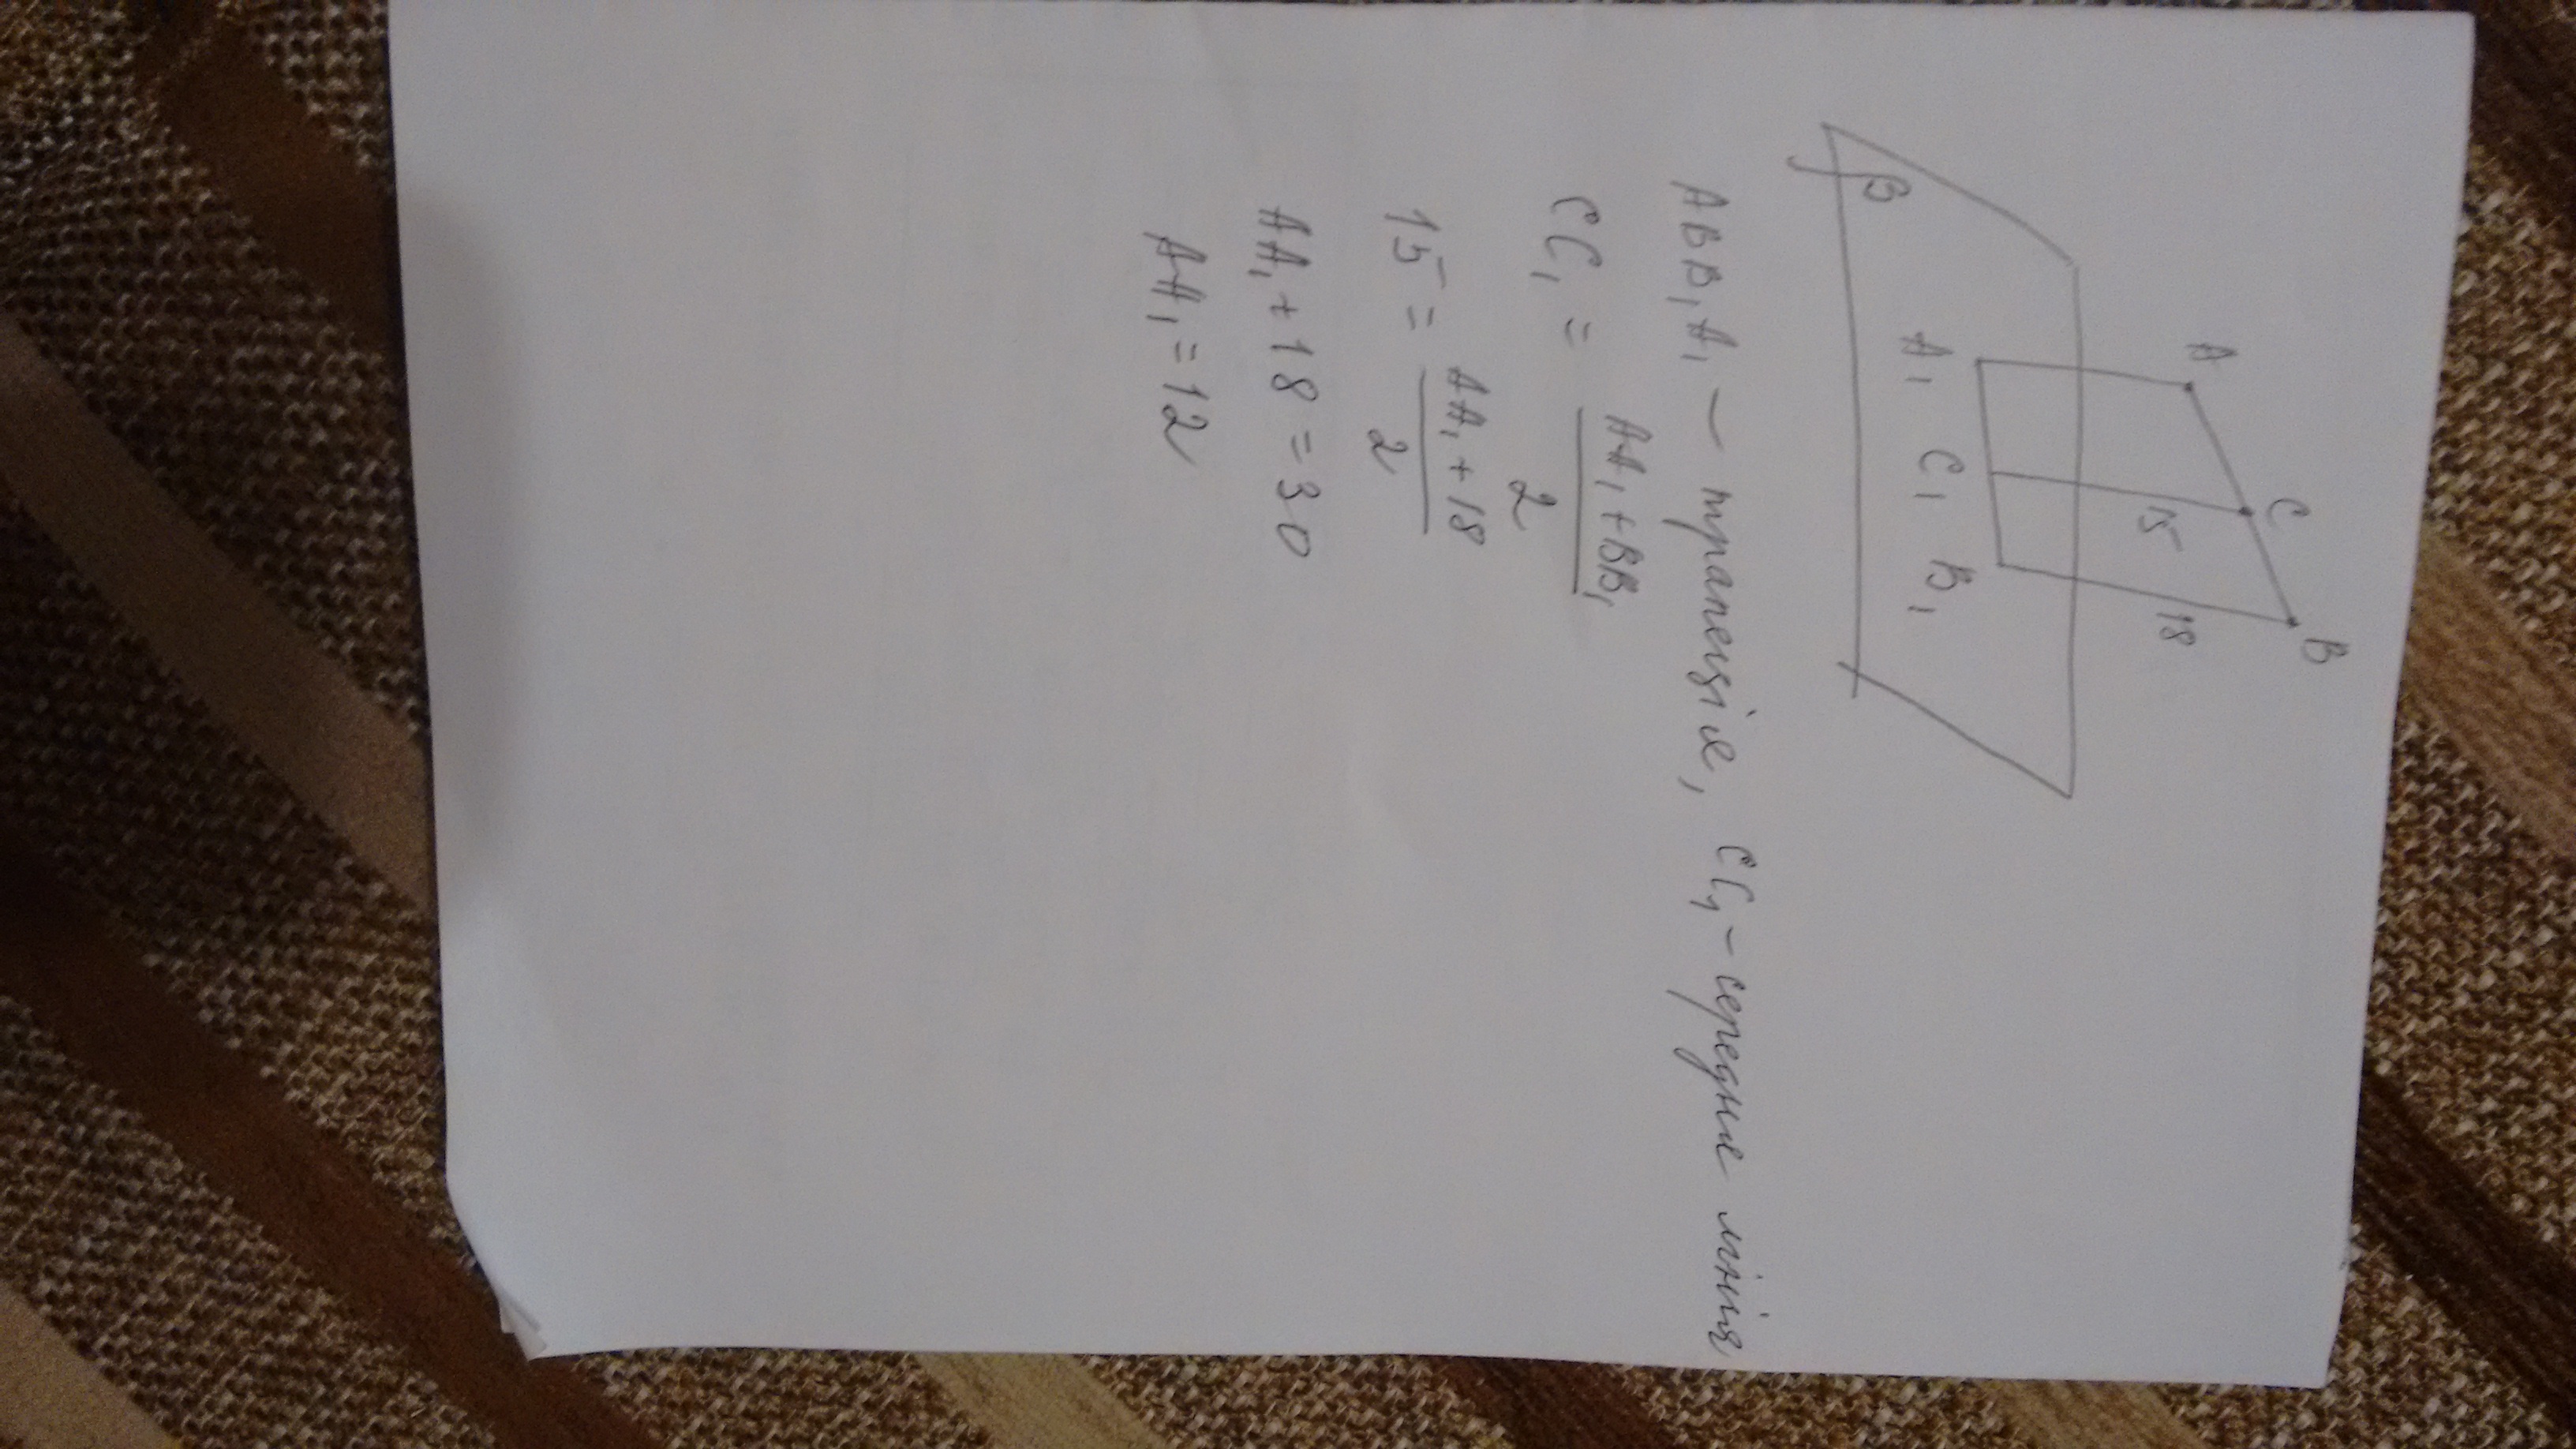 A C B
15 18
β A₁ C₁ B₁
ABB₁A₁ – трапеція, CC₁ – середня лінія
CC₁ = (AA₁ + BB₁)/2
15 = (AA₁ + 18)/2
AA₁ + 18 = 30
AA₁ = 12